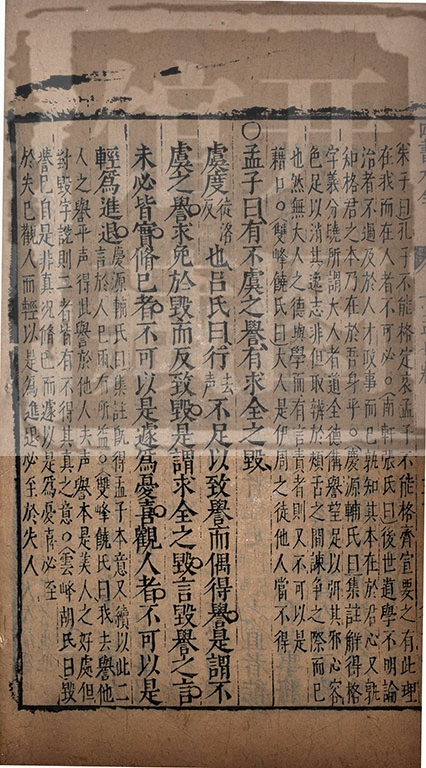 朱子曰孔子不能格定哀孟子不能格齊宣要之有此理
在我而在人者不可必○南軒張氏曰後世道學不明論
治者不過及於人才政事而已孰知其本在於君心又孰
知格君之本乃在於吾身乎○慶源輔氏曰集註解得格
字義分曉所謂大人者道全德備譽望足以弭其邪心容
色足以消其逸志非但取辦於頰舌之間諫争之際而已
也然無大人之德與學而有言責者則又不可以是
藉口○雙峰饒氏曰大人是伊周之徒他人當不得
○孟子曰有不虞之譽有求全之毀
虞度徒洛反也吕氏曰行去聲不足以致譽而偶得譽是謂不
虞之譽求免於毀而反致毀是謂求全之毀言毀譽之言
未必皆實脩己者不可以是遽為憂喜觀人者不可以是
輕為進退慶源輔氏曰集註既得孟子本意又續以此二
言於人已兩有所益○雙峰饒氏曰我去譽他
人之譽平声得此譽於他人去声譽本是美人之好處但
對毀字說則二者皆有不得其真之意○雲峰胡氏曰毀
譽已自是非真脩己而遽以是為憂喜必至
於失己觀人而輕以是為進退必至於失人